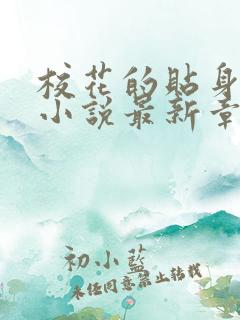 校花的貼身
小説最新章
初小藍
未经同意禁止转载